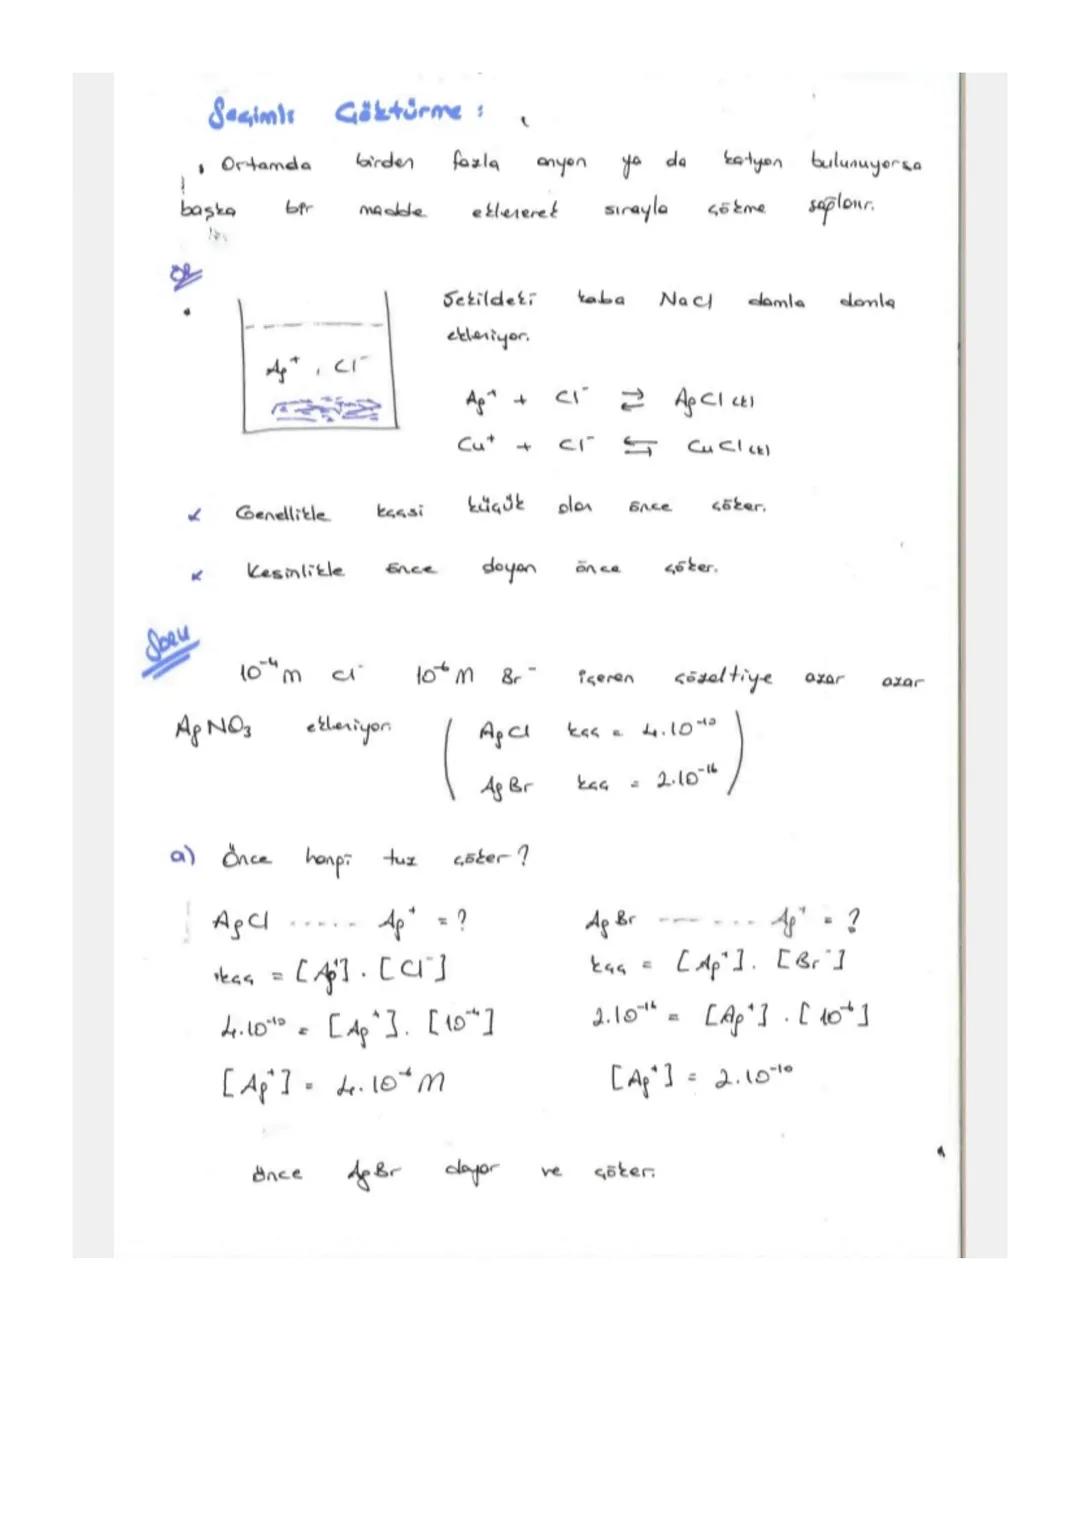 Seçimli Çöktürme :
Ortamda birden fazla anyon ya da katyon bulunuyorsa
başka bir madde eklenerek sırayla çökme sağlanır.
ÖR
Şekildeki kaba NaCl damla damla
ekleniyor.
Ag⁺ , Cl⁻
Ag⁺ + Cl⁻ ⇄ AgCl (k)
Cu⁺ + Cl⁻ ⇆ CuCl (k)
Genellikle kççsi küçük olan önce çöker.
Kesinlikle önce doyan önce çöker.
Soru
10⁻⁴ M Cl⁻ 10⁻⁶ M Br⁻ içeren çözeltiye azar azar
AgNO₃ ekleniyor. ( AgCl kçç = 4.10⁻¹⁰
AgBr kçç = 2.10⁻¹⁶ )
a) Önce hangi tuz çöker ?
AgCl ...... Ag⁺ = ? AgBr ---- ... Ag⁺ = ?
kçç = [Ag⁺] . [Cl⁻] kçç = [Ag⁺] . [Br⁻]
4.10⁻¹⁰ = [Ag⁺] . [10⁻⁴] 2.10⁻¹⁶ = [Ag⁺] . [10⁻⁶]
[Ag⁺] = 4.10⁻⁶ M [Ag⁺] = 2.10⁻¹⁰
önce AgBr doyar ve çöker.